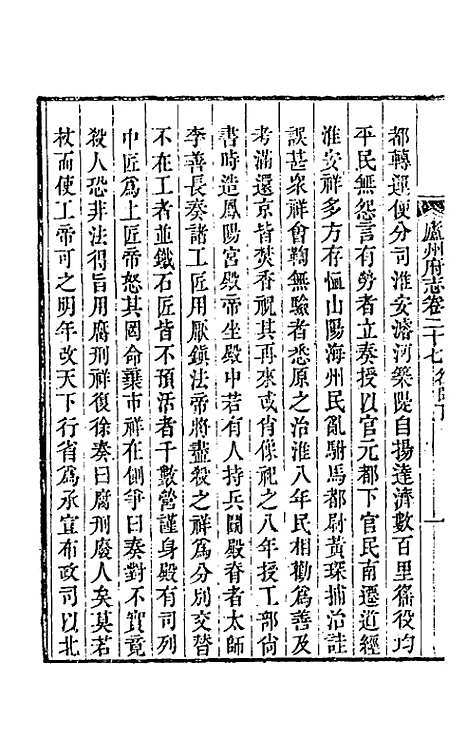 廬州府志卷二十七
一
都轉運使分司淮安濬河築隄自揚達濟數百里徭役均
平民無怨言有勞者立奏授以官元都下官民南遷道經
淮安祥多方存恤山陽海州民亂駙馬都尉黃琛捕治詿
誤甚衆祥會鞠無驗者悉原之治淮八年民相勸爲善及
考滿還京皆焚香祝其再來或肖像祀之八年授工部尙
書時造鳳陽宮殿帝坐殿中若有人持兵鬭殿脊者太師
李善長奏諸工匠用厭鎭法帝將盡殺之祥爲分別交替
不在工者並鐵石匠皆不預活者千數營謹身殿有司列
中匠爲上匠帝怒其罔命棄市祥在側爭曰奏對不實竟
殺人恐非法得旨用腐刑祥復徐奏曰腐刑廢人矣莫若
杖而使工帝可之明年改天下行省爲承宣布政司以北